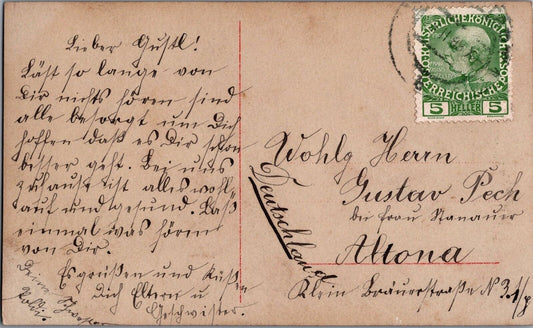 Lieber Gustl!
Läst so lange von
Dir nichts hören sind
alle besorgt um Dich
hoffen daß es Dir schon
besser geht. Bei uns
zuhause ist alles wohl-
auf und gesund. Laß
einmal was hören
von Dir.
Es grüßen und Küßen
Dich Eltern u
Geschwister.
Deine Schwester
KAISERLICHE KÖNIGLICHE
ÖSTERREICHISCHE POST
5 HELLER 5
Wohlg Herrn
Gustav Pech
bei Frau Stanauer
Altona
Deutschland
Klein Bräuerstraße N 3.1/